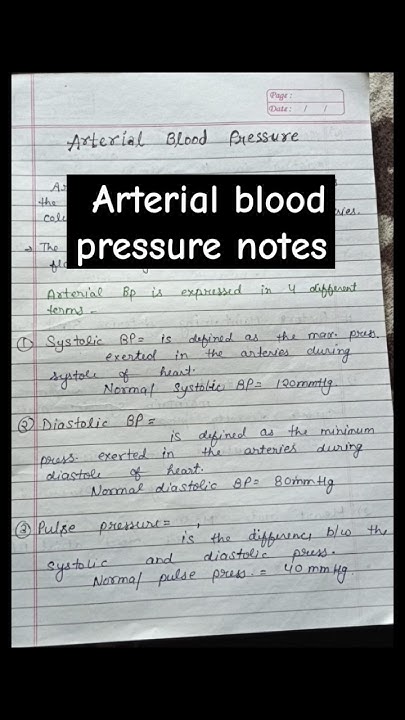 Page:
Date: / /
Arterial Blood Pressure
Arterial blood
pressure notes
the
ries.
→ The
Arterial Bp is expressed in 4 different
terms -
① Systolic BP= is defined as the max. press.
exerted in the arteries during
systole of heart.
Normal Systolic BP= 120mmHg.
② Diastolic BP=
is defined as the minimum
press. exerted in the arteries during
diastole of heart.
Normal diastolic BP= 80mmHg
③ Pulse pressure=
is the difference b/w the
systolic and diastolic press.
Normal pulse press. = 40 mmHg.